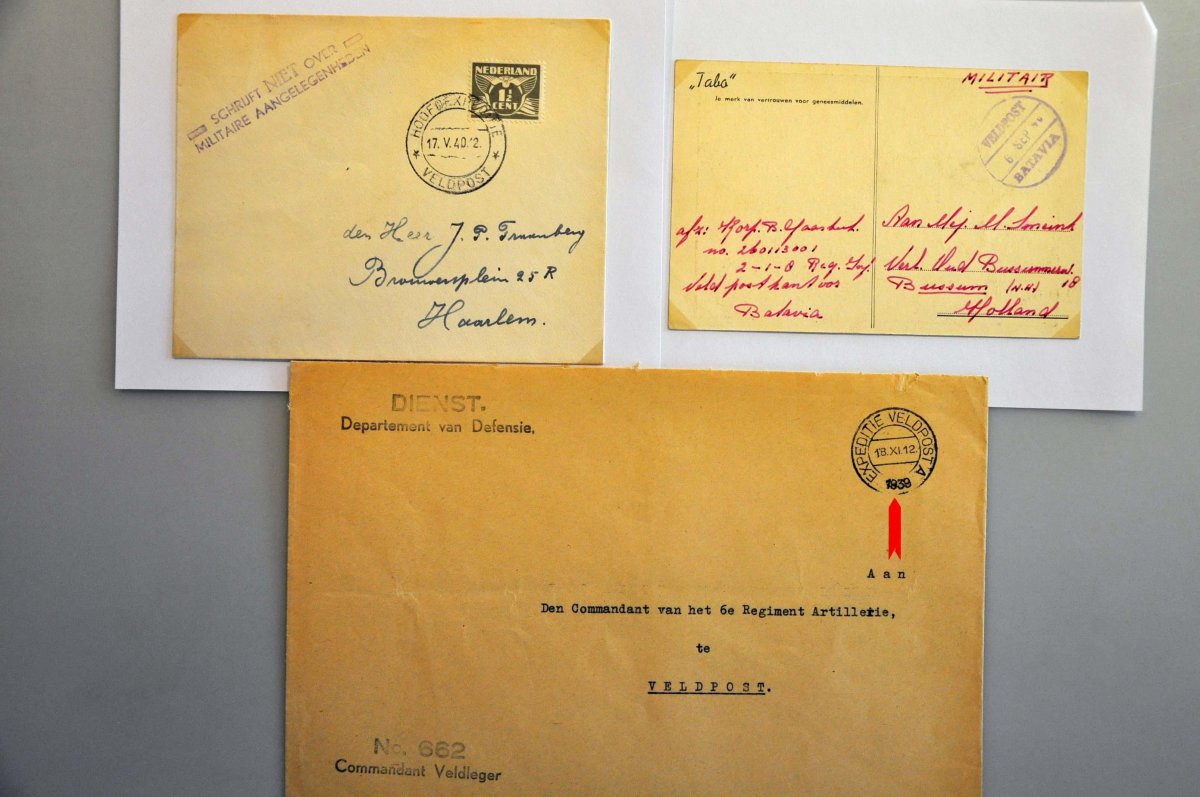 SCHRIJFT NIET OVER
MILITAIRE AANGELEGENHEDEN
NEDERLAND
1½
CENT
HOOFDEXPEDITIE
17.V.40.12.
VELDPOST
den Heer J. P. Traanberg
Brouwersplein 25 R
Haarlem.
„Tabo"
Je merk van vertrouwen voor geneesmiddelen.
MILITAIR
VELDPOST
6 SEP
BATAVIA
afz: Korp. B.
no. 260113001
2-1-8 Reg. Inf.
Veldpostkantoor
Batavia
Aan Mej. M. Smeink
Vert. Oud Bussummerw.
Bussum (N.H.) 18
Holland
DIENST.
Departement van Defensie.
EXPEDITIE VELDPOST A
18.XI.12.
1939
Aan
Den Commandant van het 6e Regiment Artillerie,
te
VELDPOST.
No. 662
Commandant Veldleger